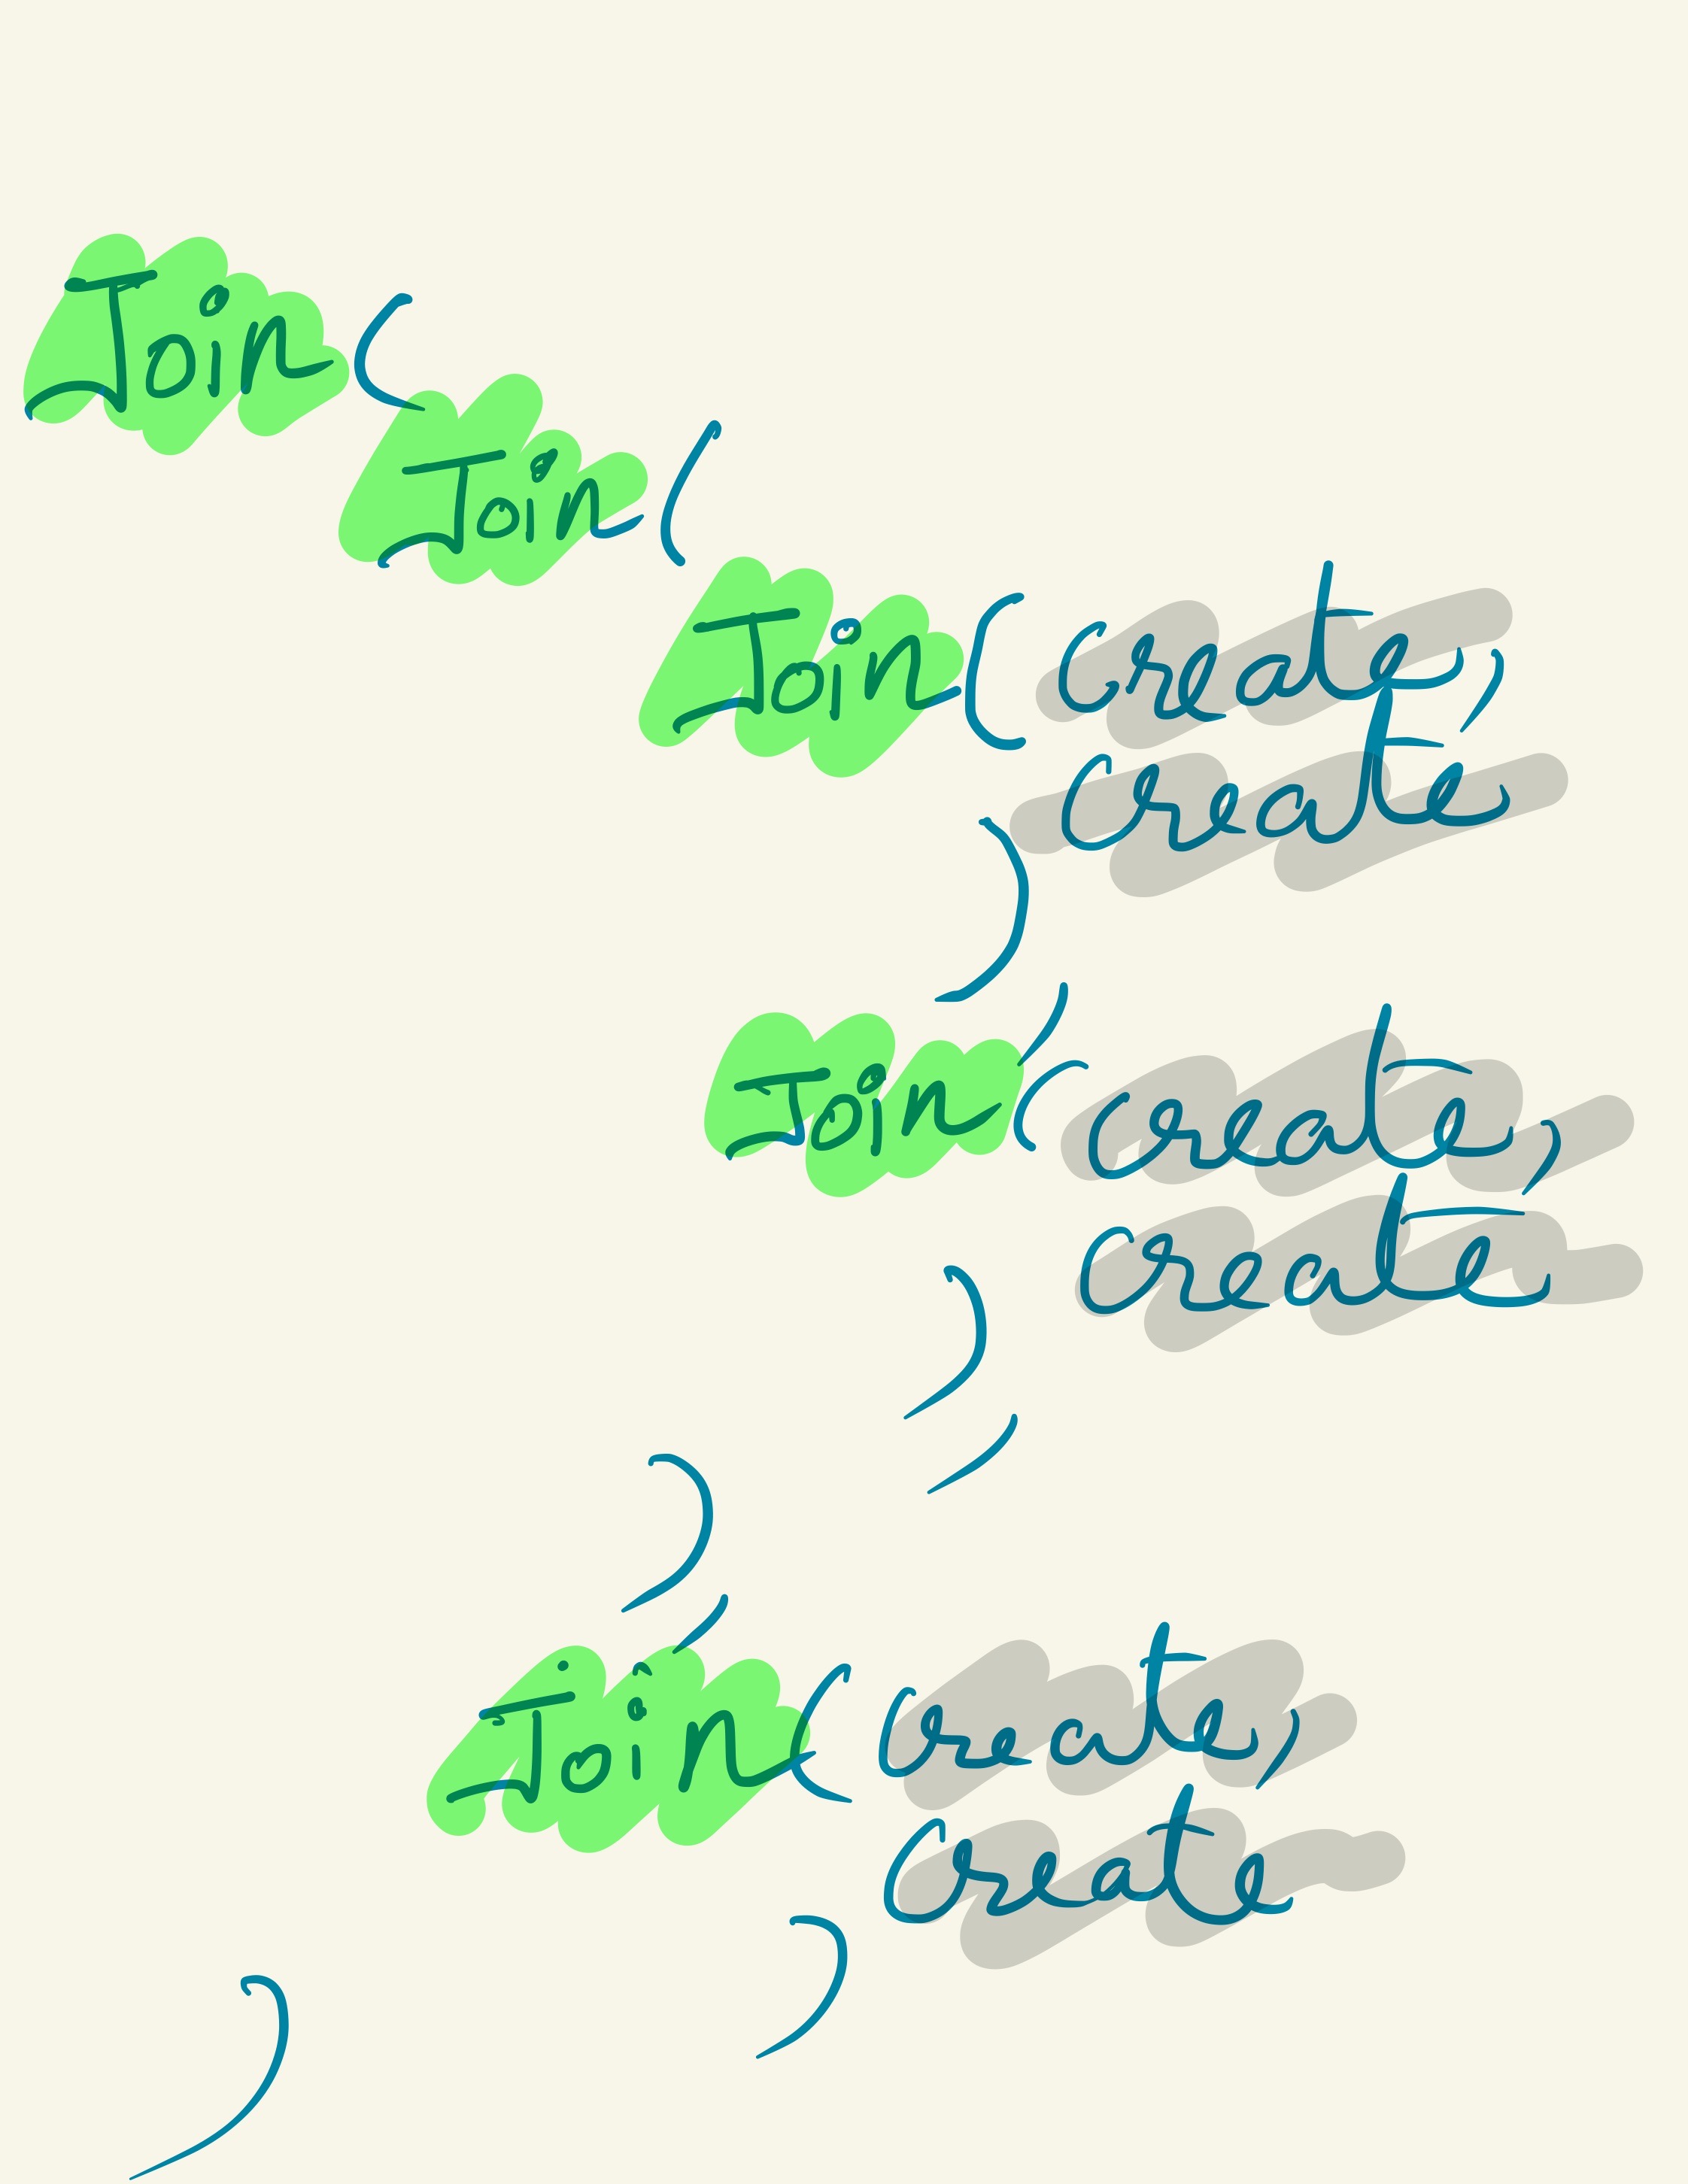 Join(
Join(
Join(create,
create
)
,
Join(create,
create
)
,
)
,
Join(create,
create
)
)